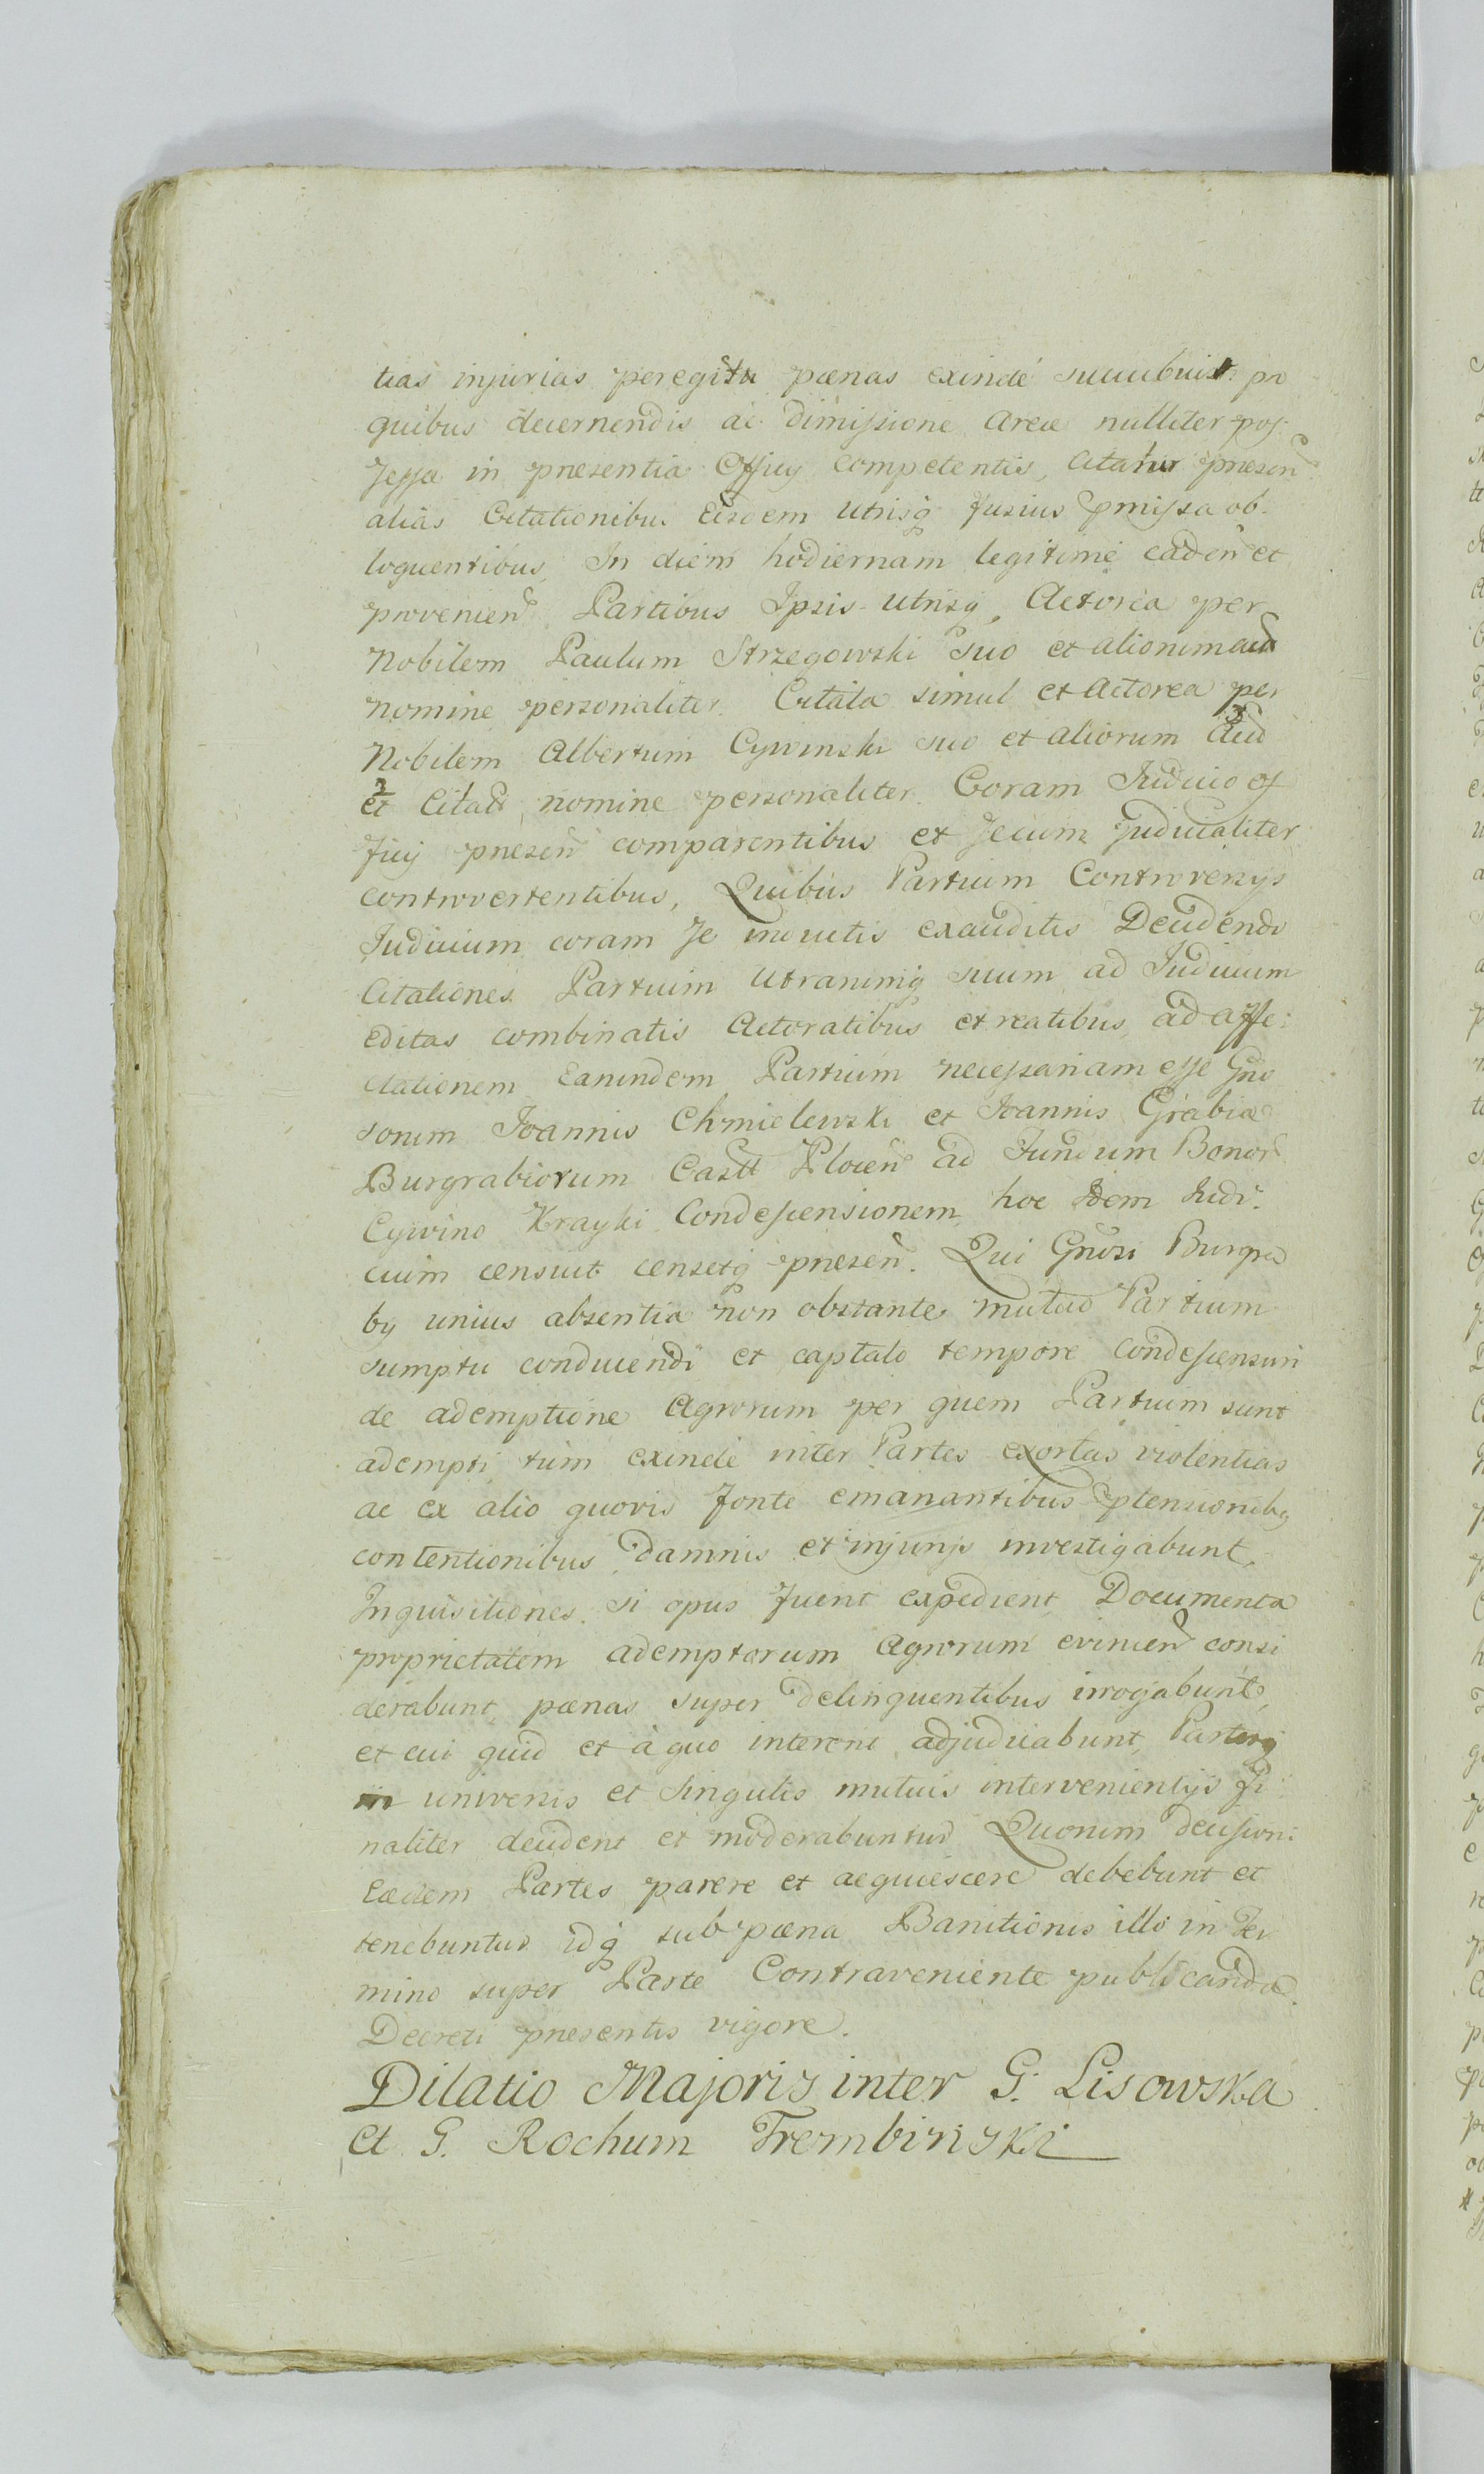 tias injurias peregitu pœnas exinde succubuit pro
quibus decernendis ac dimissione Areæ nulliter pos-
sessa in præsentia Officij competentis, citatur præsen
alias Citationibus Eisdem utrisq fusius præmissa ob-
loquentibus, In diem hodiernam legitime caden et
provenien Partibus Ipsis utrisq, Actorea per
Nobilem Paulum Strzegowski suo et aliorum
nomine personaliter. Citata simul et Actorea per
Nobilem Albertum Cywinski suo et aliorum
et Citat nomine personaliter Coram Judicio of
ficij præsen comparentibus et secum Judicialiter
controvertentibus, Quibus Partium Controversijs
Judicium coram se inductis exauditis Decidendo
Citationes Partium Utrarumq suum ad Judicium
editas combinatis Actoratibus et reatibus, ad affe-
ctationem Earundem Partium necessariam esse Gno
sorum Joannis Chmielewski et Joannis Grabia
Burgrabiorum Castt Plocen ad Fundum Bonor
Cywino Krayki Condescensionem, hoc Idem Judi-
cium censuit censetq præsen. Qui Gnosi Burgra
bij unius absentia non obstante mutuo Partium
sumptu conducendi et captato tempore condescensuri
de ademptione Agrorum per quem Partium sunt
adempti, tum exinde inter Partes exortas violentias
ac ex alio quovis fonte emanantibus ptensionibq
contentionibus, damnis et injurijs investigabunt,
Inquisitiones si opus fuerit expedient, Documenta
proprietatem ademptorum Agrorum evincen consi
derabunt, pœnas super delinquentibus irrogabunt,
et cui quid et à quo intererit adjudicabunt, Partesq
in universis et singulis mutuis intervenientijs fi
naliter decident et moderabuntur Quorum decisioni
Eædem Partes parere et acquiescere debebunt et
tenebuntur idq sub pœna Banitionis illo in Ter
mino super Parte Contraveniente publicanda
Decreti præsentis vigore.
Dilatio Majoris inter G. Lisowska
et G. Rochum Trembinski